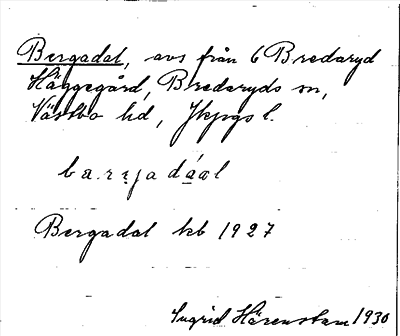 Bergadal, avs från 6 Bredaryd
Häggegård, Bredaryds sn,
Västbo hd, Jkpgs l.
Bergadal kb 1927
Ingrid Härenstam 1930